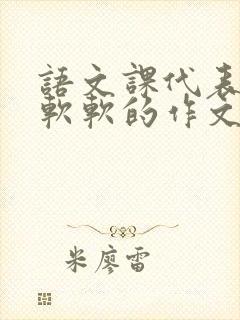 語文課代表
軟軟的作文
米廖雷